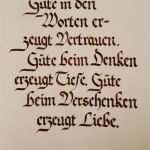 Güte in den
Worten er-
zeugt Vertrauen.
Güte beim Denken
erzeugt Tiefe. Güte
beim Verschenken
erzeugt Liebe.